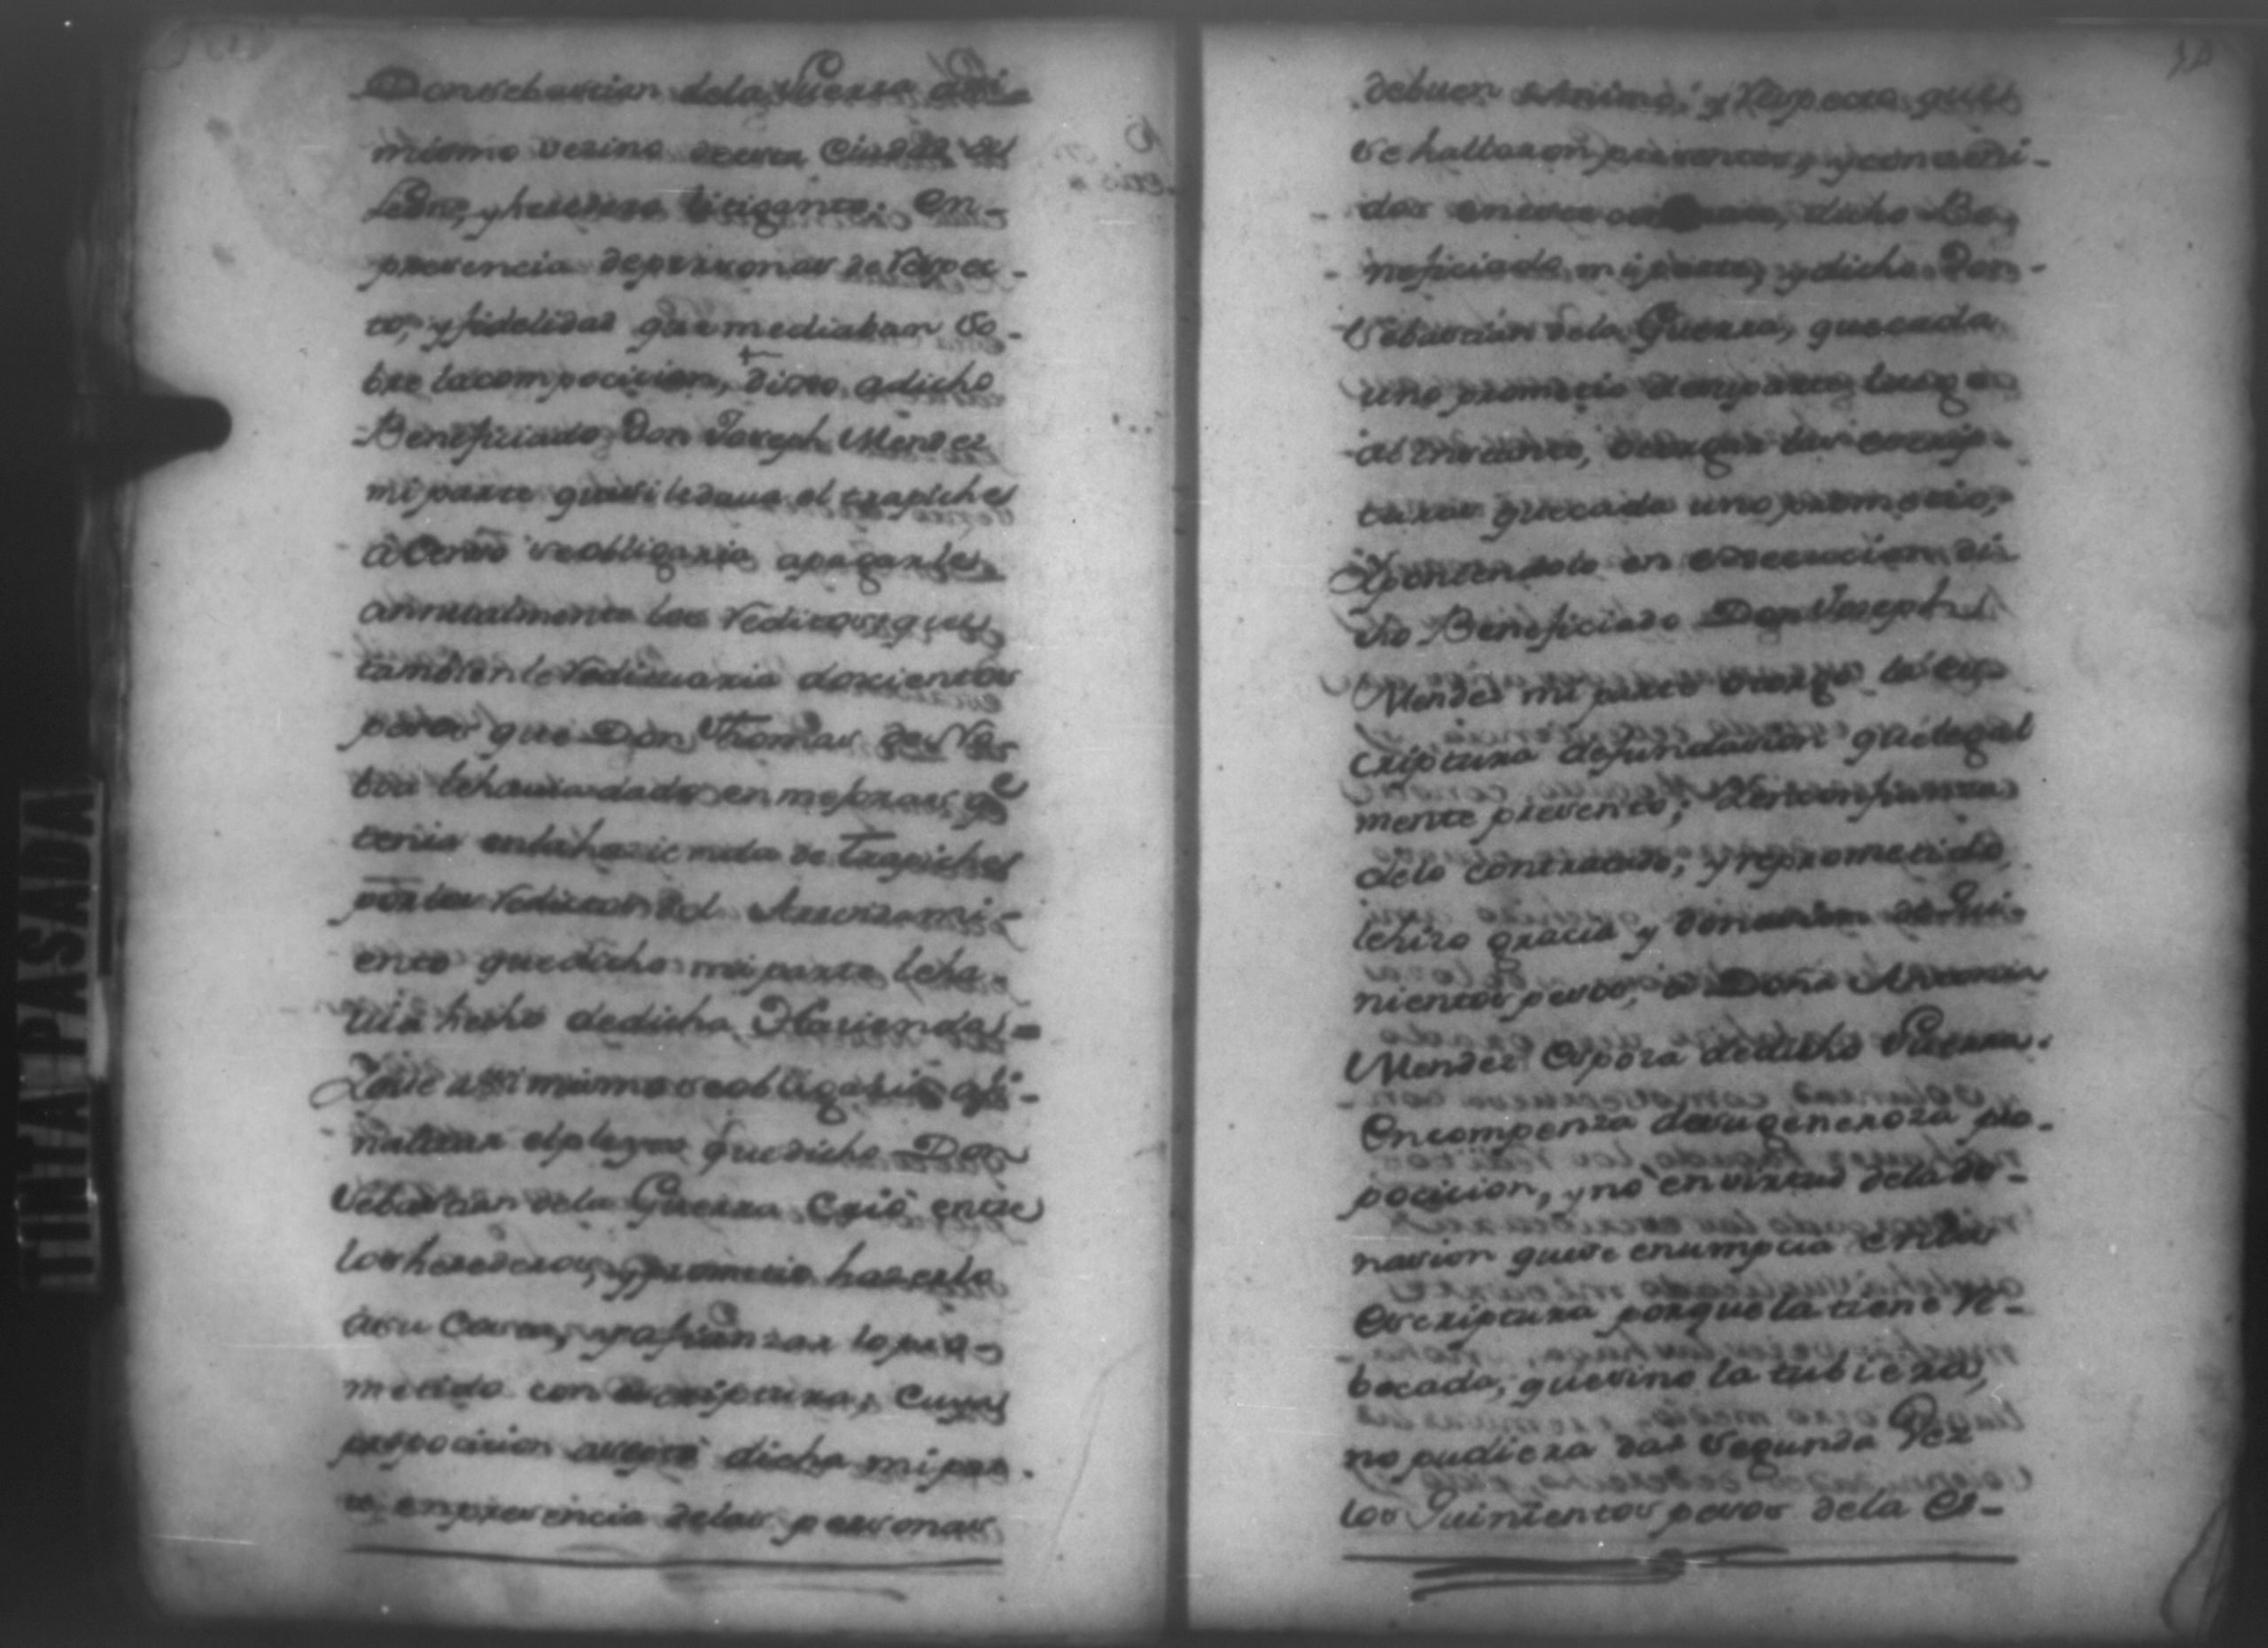 Donsebastian dela Guerra assi
mismo vezino deesta Ciudad de
Leon, y heredero litigante. en-
precencia depersonas de respec-
to, y fidelidad que mediaban so-
bre lacompocicion, dixo adicho
Beneficiado Don Joseph Mendez
mi parte quesi ledaua el trapiche
à Censo seobligaria apagarle
annualmente los reditos, y que
tambien le redituaria docientos
pesos que Don Thomas de
lehauia dado en mejoras, q.e
tenia enlahazienda de trapiche
por los reditos del Arrenzami-
ento quedicho mi parte leha-
uia hecho dedicha Hazienda =
Yque assi mismo seobligaria afi-
nalizar elpleyto quedicho Don
Sebastian dela Guerra Crió entre
los herederos, y prometio hazerlo
àsu Costa, y afianzar lopro-
metido con escriptura, Cuya
propocicion aceptò dicha mi par-
te enprecencia delas personas
debuen Animo, y Respecto que
se hallaron precentes, y conveni-
dos eneste dicho Be-
neficiado mi parte, y dicho Don
Sebastian dela Guerra, quecada
uno prometio desuparte luego
al Instante, otorgar las escrip-
turas quecada uno prometio,
Yponiendolo en execucion di-
cho Beneficiado Don Joseph
Mendez mi parte otorgo la es-
criptura defundacion que legal
mente precento; Yenconfianza
delo contratado, y reprometido,
lehizo gracia y donacion dequi-
nientos pesos, a Doña Antonia
Mendez Espoza dedicho Guerra.
Encompenza desugeneroza pro-
pocicion, y no envirtud delado-
nacion quese enumpcia enlas
Escriptura porquela tiene re-
bocada, quesino la tubiera,
no pudiera dar segunda Vez
los Quinientos pesos dela Es-
TINTA PASADA